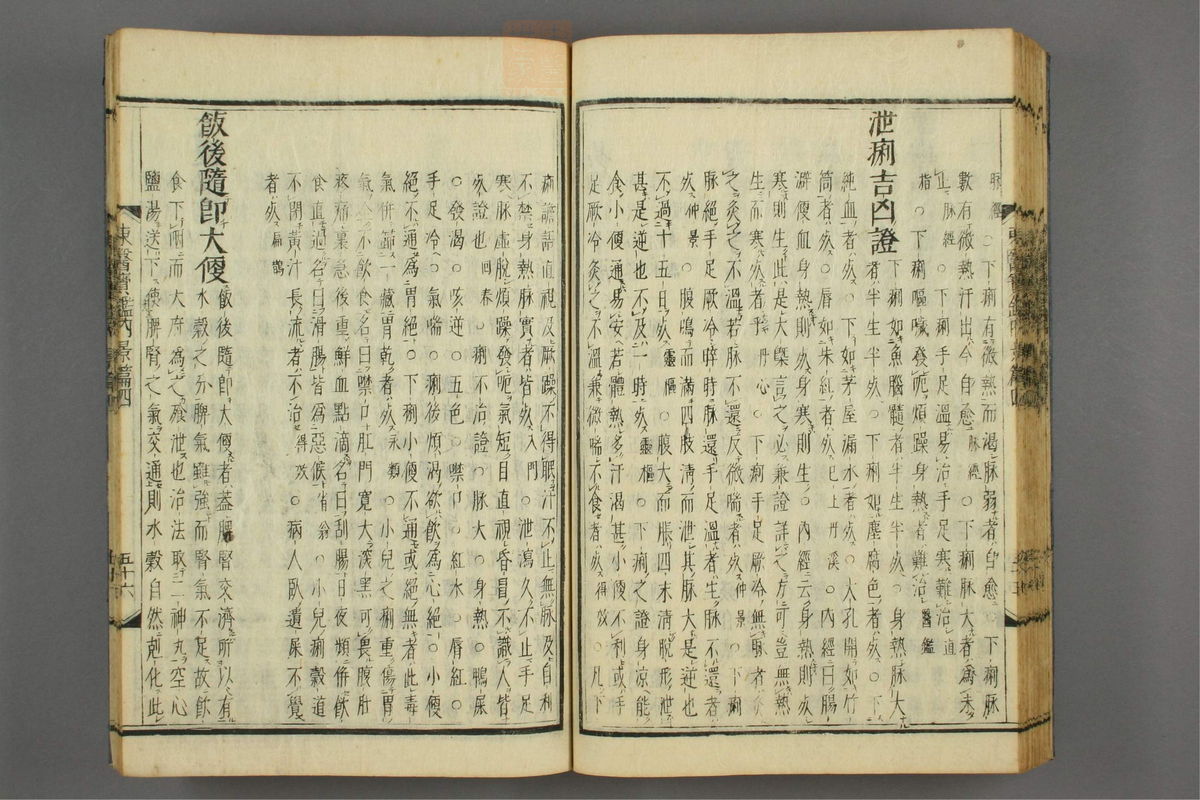 脉經○下痢有微熱而渴脉弱者自愈○下痢脉
數有微熱汗出令自愈脉經○下痢脉大者爲未
止脉經○下痢手足溫易治手足寒難治直
指○下痢嘔噦發呃煩躁身熱者難治醫鑑
泄痢吉凶證
下痢如魚腦髓者半生半死○身熱脉大
者半生半死○下痢如塵腐色者死○下
純血者死○下如茅屋漏水者死○大孔開如竹
筒者死○唇如朱紅者死已上丹溪○內經曰腸
澼便血身熱則死身寒則生○內經云身熱則死
寒則生此是大槩言之必兼證詳之方可豈無熱
生而寒死者乎丹心○下痢手足厥冷無脉者
灸之不溫若脉不還反微喘者死仲景○下痢
脉絕手足厥冷晬時脉還手足溫者生脉不還者
死仲景○腹鳴而滿四肢淸而泄其脉大是逆也
不過十五日死靈樞○腹大而脹四末淸脫形泄
甚是逆也不及一時死靈樞○下痢之證身凉能
食小便通易安若體熱多汗渴甚小便不利或手
足厥冷灸之不溫兼微喘不食者死得效○凡下
痢譫語直視及厥躁不得眠汗不止無脉及自利
不禁身熱脉實者皆死入門○泄瀉久不止手足
寒脉虛脫煩躁發呃氣短目直視昏冒不識人皆
死證也回春○痢不治證○脉大○身熱○鴨屎
○發渴○咳逆○五色○噤口○紅水○唇紅○
手足冷○氣喘○痢後煩渴欲飮爲心絕○小便
絕不通爲胃絕○下痢小便不通或絕無者此毒
氣倂節一藏胃乾者死永類○小兒之痢重傷胃
氣全不飮食名曰噤口肛門寬大深黑可畏腹肚
疼痛裏急後重鮮血點滴名曰刮腸日夜頻倂飮
食直過名曰滑腸皆爲惡候省翁○小兒痢穀道
不閉黃汁長流者不治得效○病人臥遺屎不覺
者死扁鵲
飯後隨卽大便
飯後隨卽大便者盖脾腎交濟所以有
水穀之分脾氣雖强而腎氣不足故飮
食下嚥而大府爲之飱泄也治法取二神丸空心
鹽湯送下使脾腎之氣交通則水穀自然剋化此
東醫寶鑑內景篇四
五十六